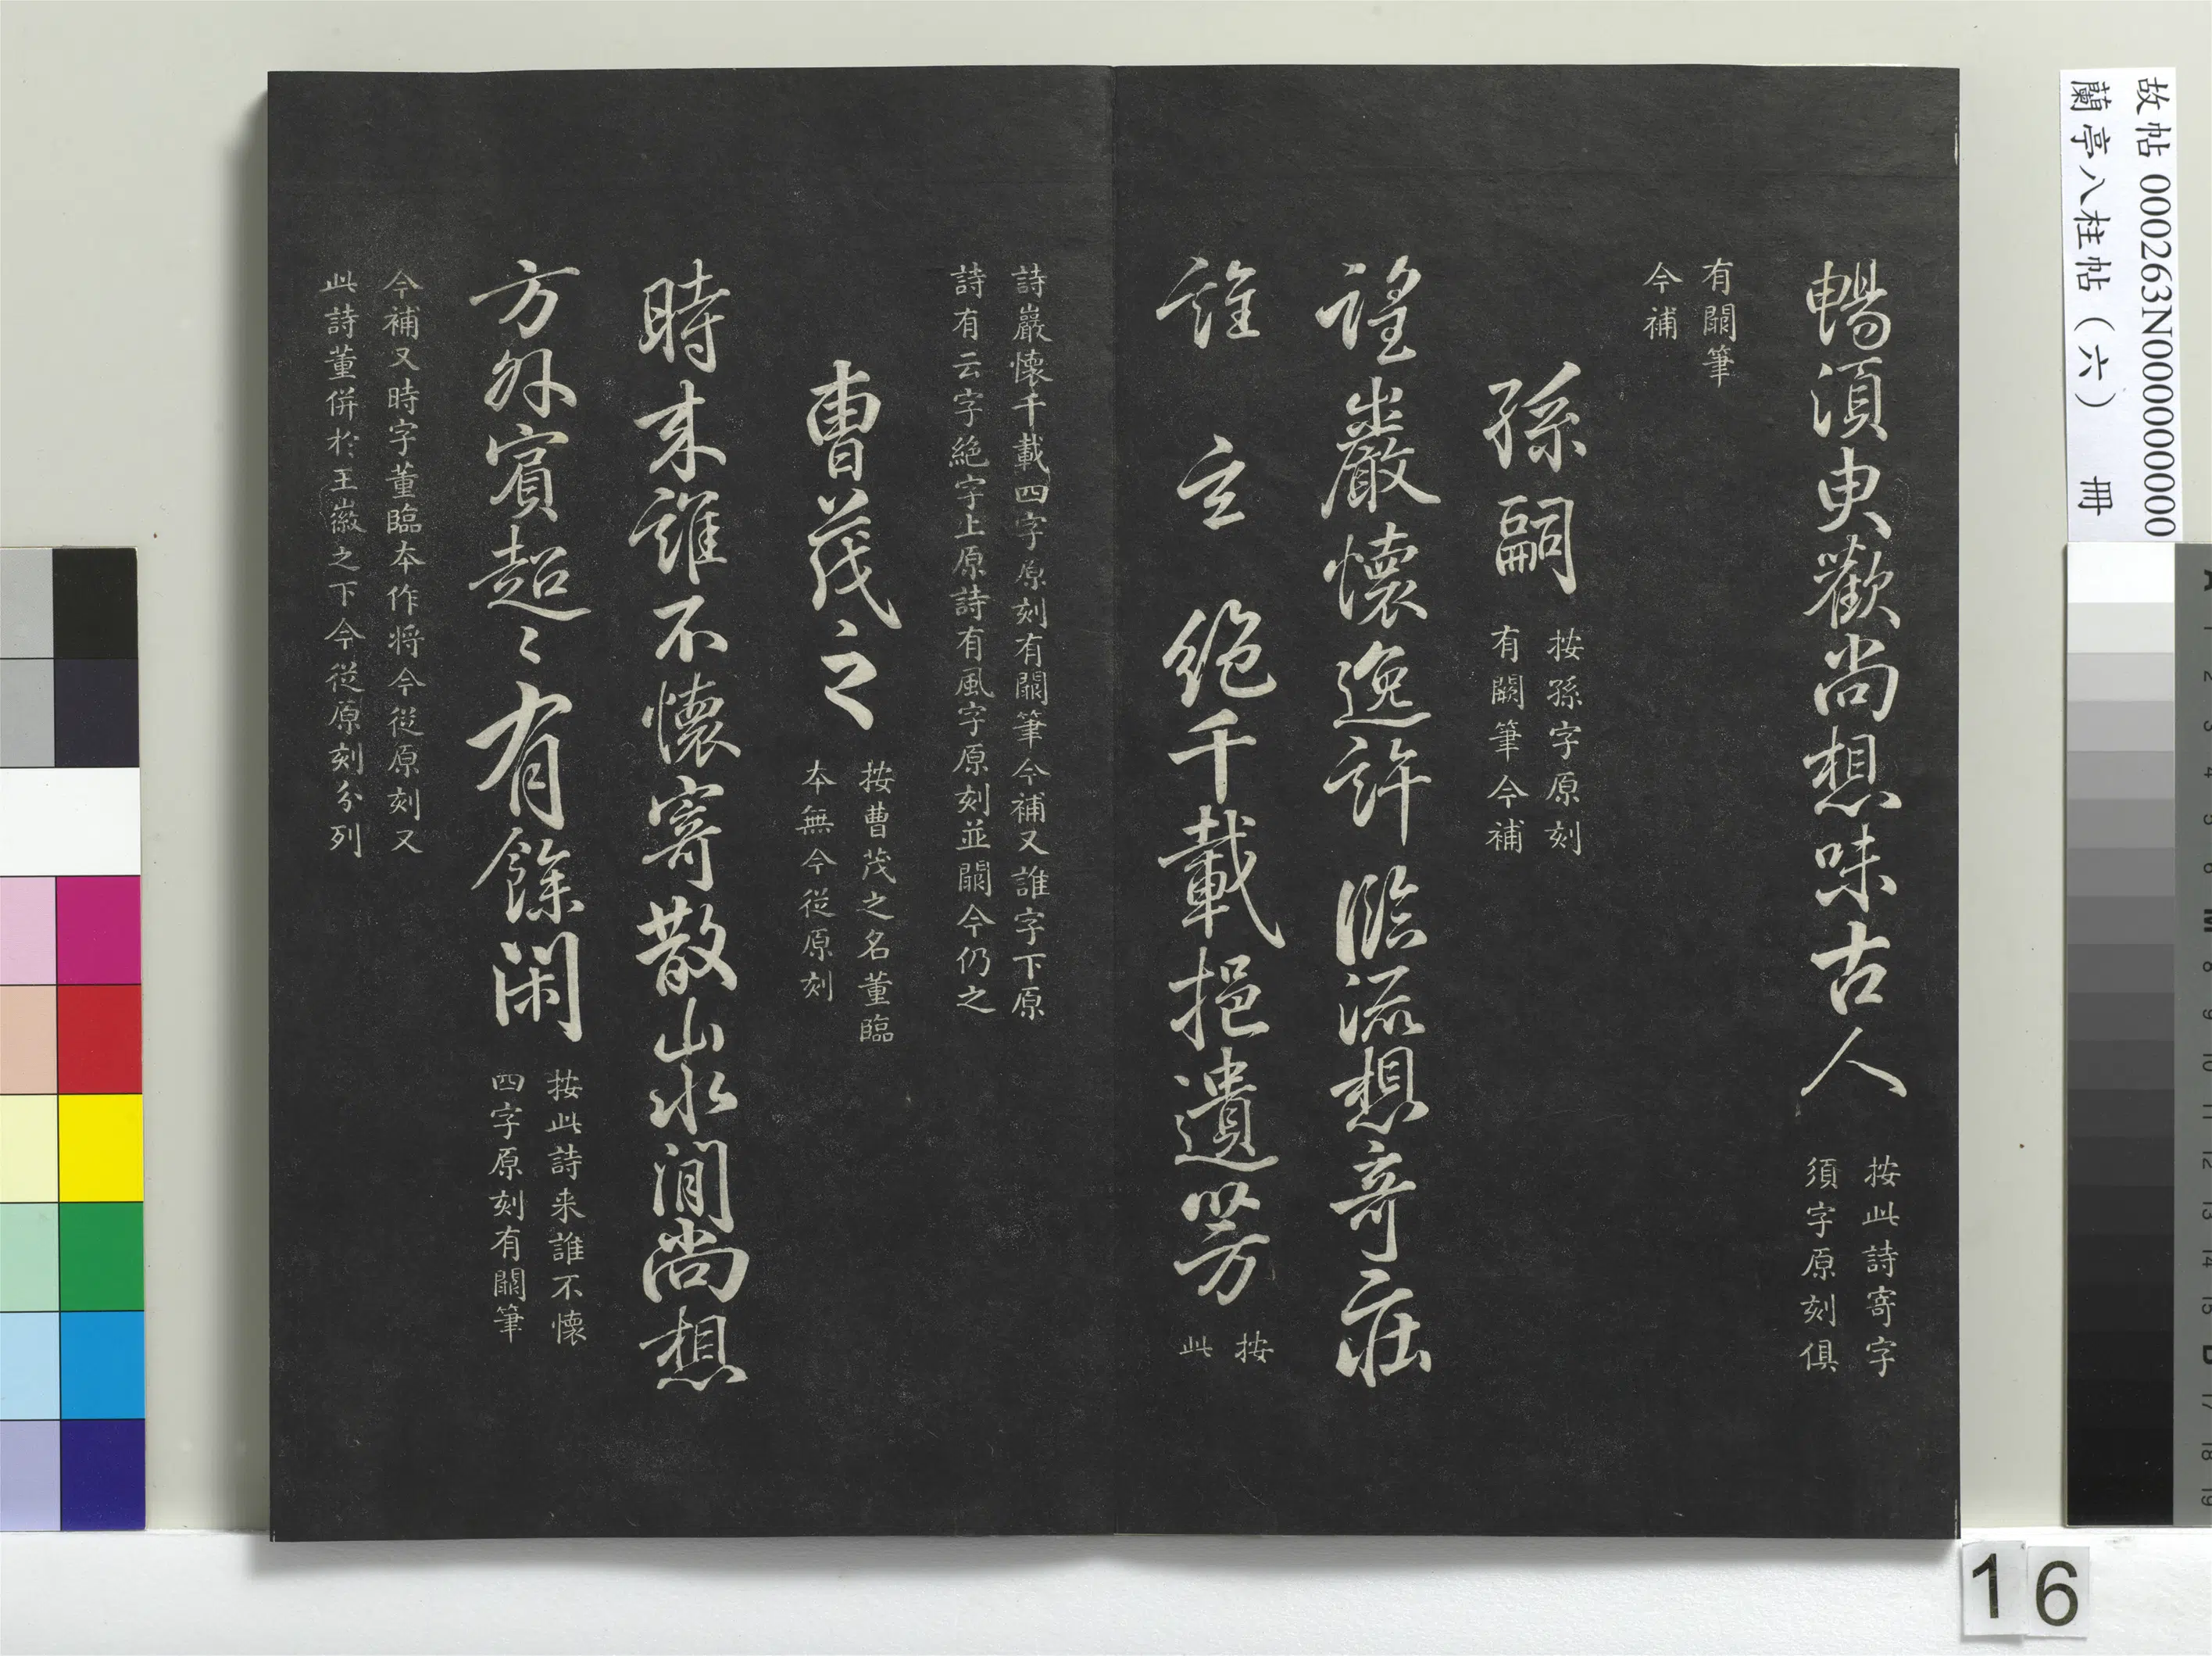 暢須臾歡尚想味古人
按此詩寄字
須字原刻俱
有闕筆
今補
孫嗣
按孫字原刻
有闕筆今補
望巖懷逸許臨流想奇莊
誰 云 絕千載挹遺芳
按
此
詩巖懷千載四字原刻有闕筆今補又誰字下原
詩有云字絕字上原詩有風字原刻並闕今仍之
曹茂之
按曹茂之名董臨
本無今從原刻
時來誰不懷寄散山水間尚想
方外賓超〻有餘閑
按此詩来誰不懷
四字原刻有闕筆
今補又時字董臨本作將今從原刻又
此詩董併於王徽之下今從原刻分列
故帖 000263N000000000
蘭亭八柱帖（六） 冊
16